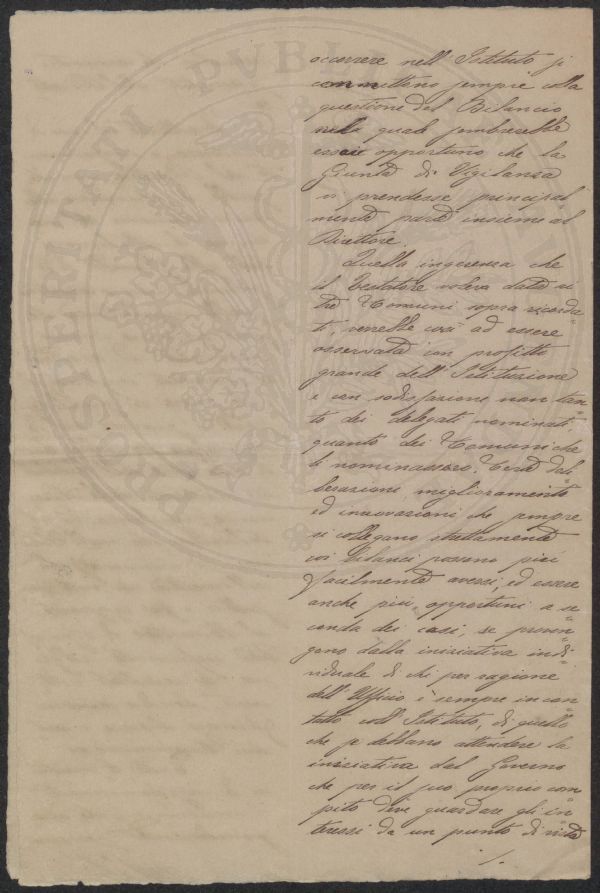 occorrere nell'Istituto si
connettono sempre colla
questione del Bilancio
nella quale sembrerebbe
essere opportuno che la
Giunta di Vigilanza
vi prendesse principal
mente parte insieme al
Direttore.
Quella ingerenza che
il Testatore voleva data ai
tre Comuni sopra ricorda=
ti, verrebbe così ad essere
osservata con profitto
grande dell'Istituzione
e con sodisfazione non tan=
to dei delegati nominati,
quanto dei Comuni che
li nominassero. Certe deli
berazione miglioramente
ed innovazioni, che sempre
si collegano strettamente
coi bilanci possono più
facilmente aversi, ed essere
anche più opportuni a se=
conda dei casi, se proven=
gano dalla iniziativa indi=
viduale di chi per ragione
dell'Ufficio è sempre in con
tatto coll'Istituto, di quello
che se debbano attendere la
iniziativa del Governo
che per il suo proprio com
pito deve guardare gli in=
teressi da un punto di vista
./.
PROSPERITATI PVBLI